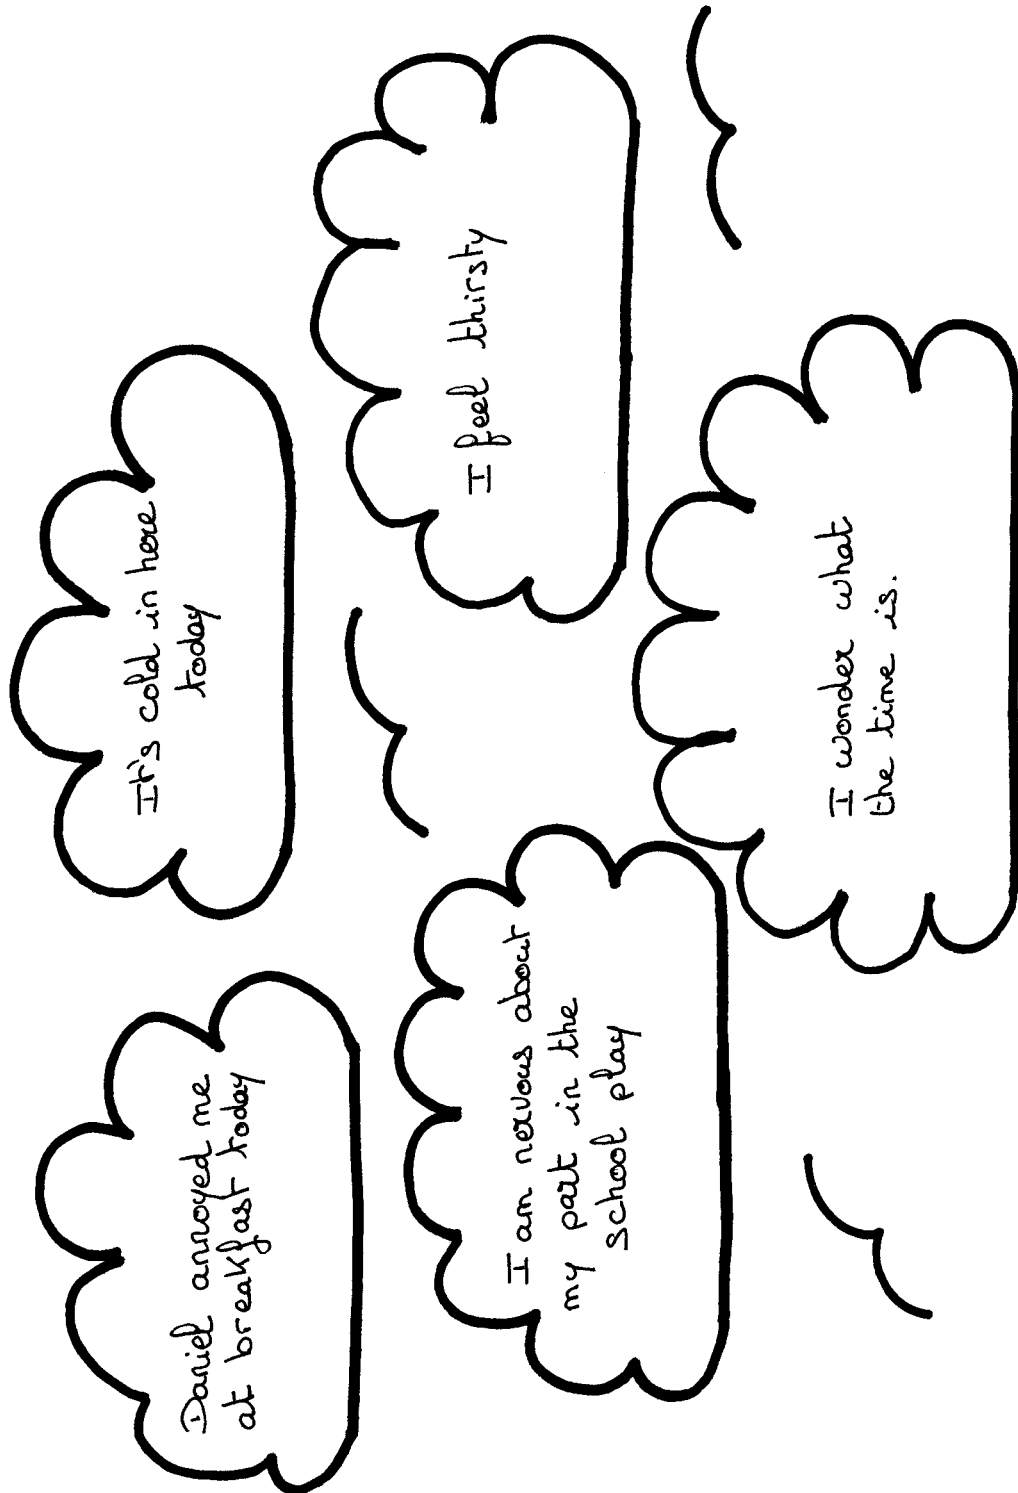 Daniel annoyed me
at breakfast today
It's cold in here
today
I feel thirsty
I am nervous about
my part in the
school play
I wonder what
the time is.